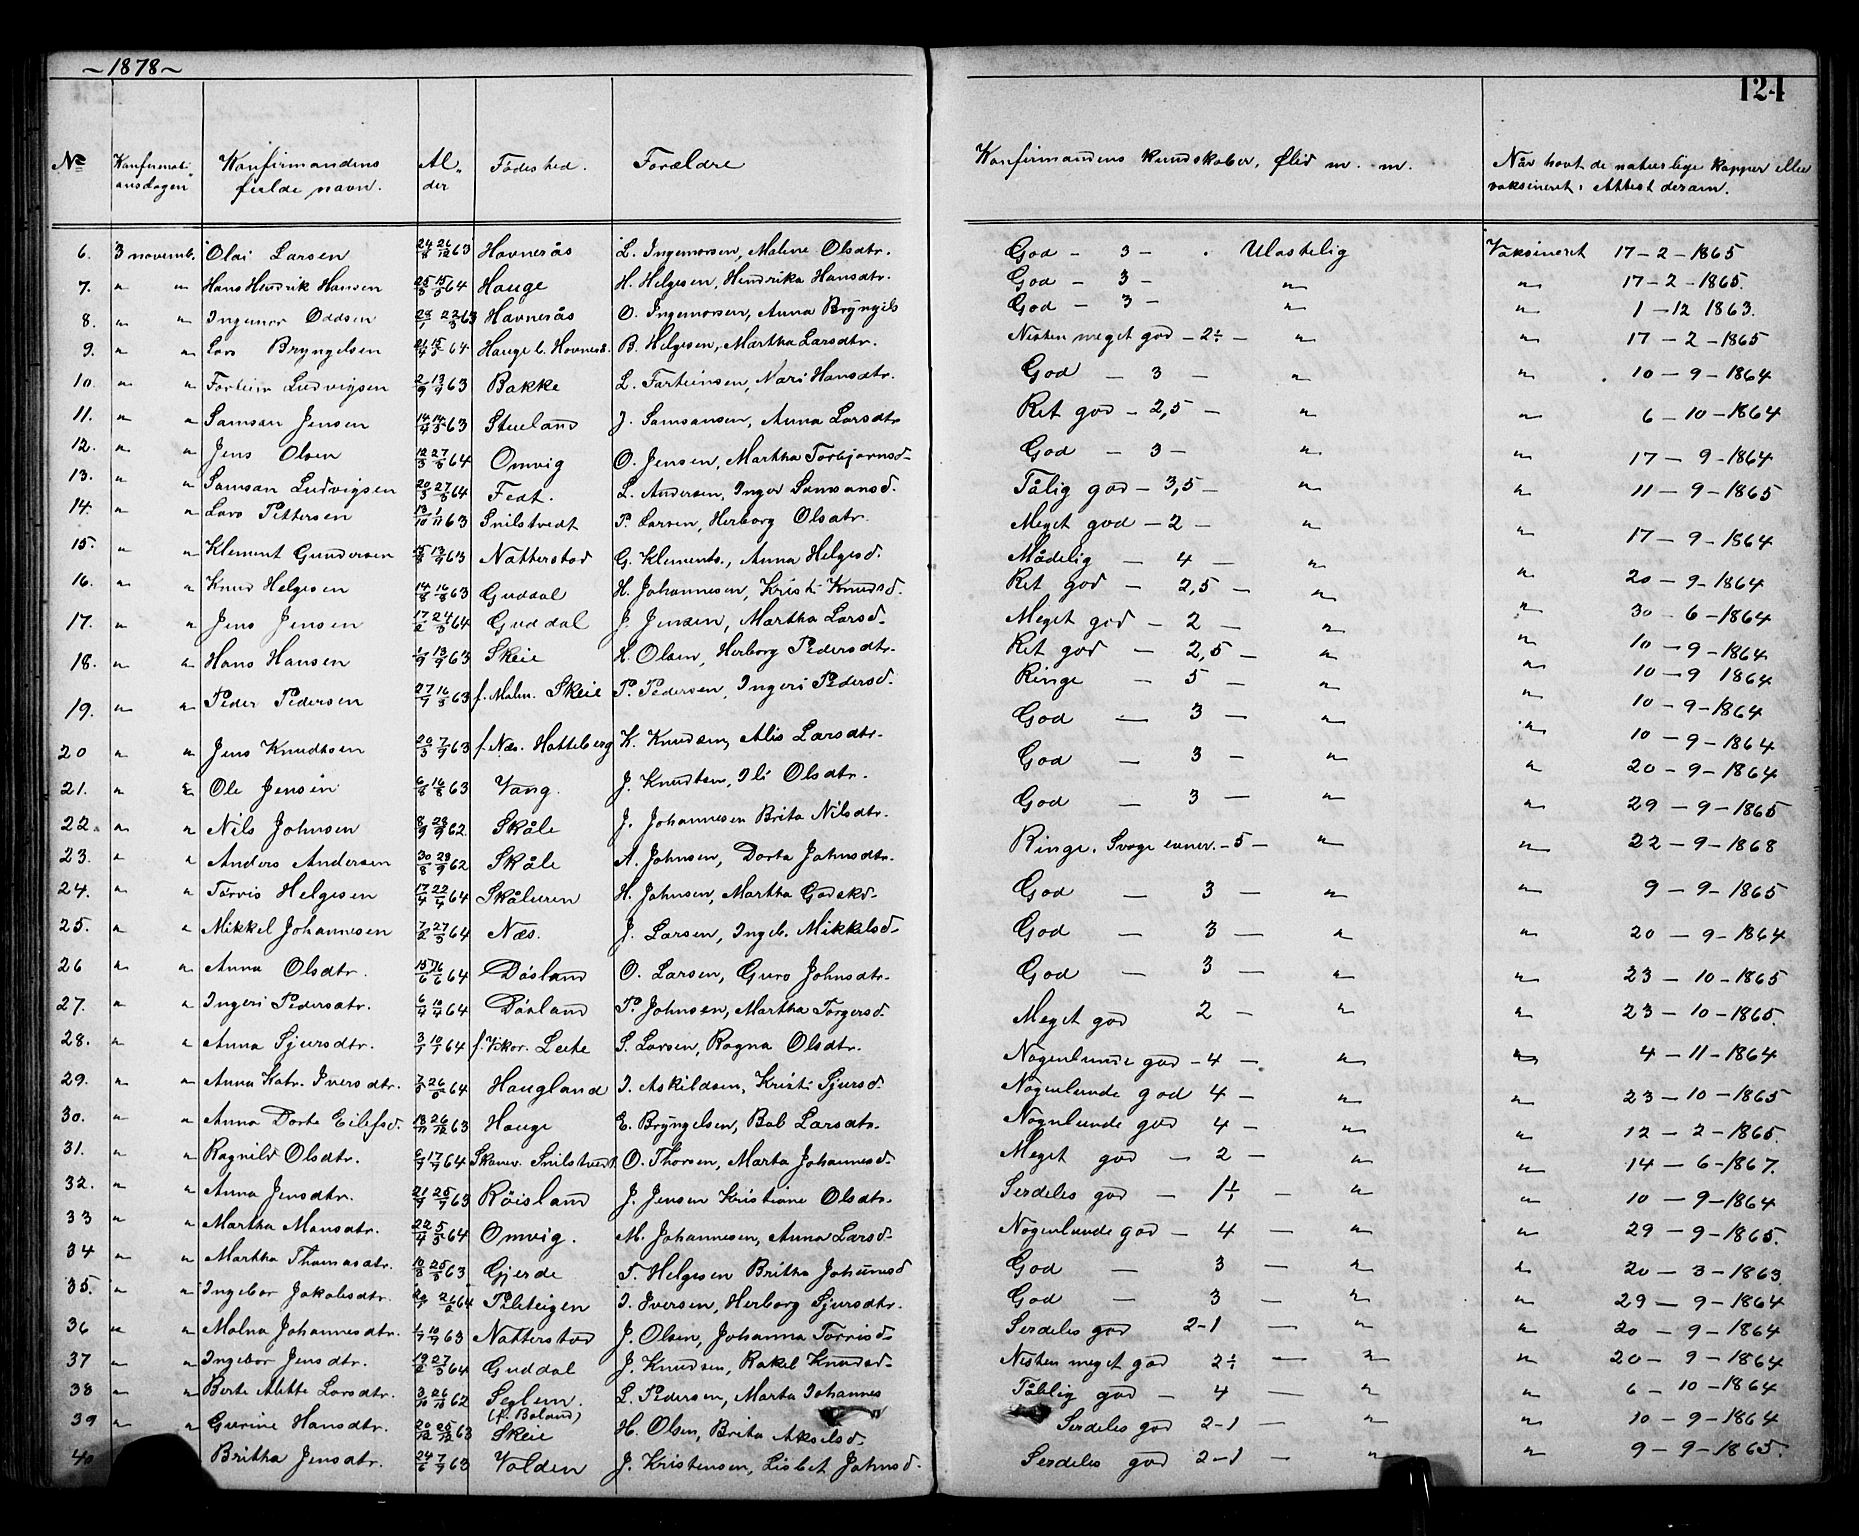 ~1878~
124
No Konfirmationsdagen Konfirmandens fulde navn. Alder Fødested. Forældre Konfirmandens kundskaber, flid m. m. Når havt de naturlige kopper eller vaksineret; Attest derom.
6. 3 novemb. Olai Larsen 24/8 26/12 63 Havnerås L. Ingemorsen, Malene Olsdtr. God - 3 - Ulastelig Vaksineret 17-2-1865
7. " " Hans Hendrik Hansen 64 Hauge H. Helgesen, Hendrika Hansdtr. God - 3 - " " 17-2-1865.
8. " " Ingemor Oddsen 63 Havnerås O. Ingemorsen, Anna Bryngels God - 3 - " " 1-12 1863.
9. " " Lars Bryngelsen 64 Hauge B. Helgesen, Martha Larsdtr. Nesten meget god - 2÷ - " " 17-2-1865
10. " " Torleiv Ludvigsen 63 Bakke L. Nari Hansdtr. God - 3 - " " 10-9-1864
11. " " Samson Jensen 14/4 63 Stueland J. Samsonsen, Anna Larsdtr Ret god - 2,5 - " " 6-10-1864
12. " " Jens Olsen 64 Omvig O. Jensen, Martha Torbjørnsd. God - 3 - " " 17-9-1864
13. " " Samson Ludvigsen 64 Fedt. L. Andersen, Inger Samsonsd. Tålig god - 3,5 - " " 11-9-1865
14. " " Lars Pettersen 13/10 1/11 63 Snilstvedt P. Larsen, Herborg Olsdtr. Meget god - 2 - " " 17-9-1864
15. " " Klement Gundersen 63 Natterstad G. Klements., Anna Helgesd. Mådelig - 4 - " " 20-9-1864
16. " " Knud Helgesen 14/8 63 Guddal H. Johannesen, Kristi Knudsd. Ret god - 2,5 - " " 30-6-1864
17. " " Jens Jensen 17/2 64 Guddal J. Jensen, Martha Larsd. Meget god - 2 - " " 10-9-1864
18. " " Hans Hansen 1/9 13/9 63 Skeie H. Olsen, Herborg Pedersdtr. Ret god - 2,5 - " " 10-9 1864
19. " " Peder Pedersen 27/7 63 f. Malm. Skeie P. Pedersen, Ingeri Pedersd. Ringe - 5 - " " 10-9-1864
20 " " Jens Knudtsen 63 f. Næs. Hatteberg K. Knudsen, Alis Larsdtr. God - 3 - " " 10-9-1864
21. " " Ole Jensen 6/8 16/8 63 Vang. J. Knudtsen, Ili Olsdtr. God - 3 - " " 20-9-1864
22. " " Nils Johnsen 62 Skåle J. Johannesen Brita Nilsdtr. God - 3 - " " 29-9-1865
23. " " Anders Andersen 30/8 62 Skåle A. Johnsen, Dorta Johnsdtr. Ringe. Svage evner. - 5 - " " 22-9-1868
24. " " Tørris Helgesen 17/4 64 Skåluren H. Johnsen, Martha Godskd. God - 3 - " " 9-9-1865
25. " " Mikkel Johannesen 7/2 64 Næs. J. Larsen, Ingeb. Mikkelsd. God - 3 - " " 20-9-1864
26 " " Anna Olsdtr. 64 Døsland O. Larsen, Guro Johnsdtr. God - 3 - " " 23-10-1865
27. " " Ingeri Pedersdtr. 64 Døsland P. Johnsen, Martha Torgersd. Meget god 2 - " " 23-10-1865.
28. " " Anna Sjursdtr. 64 f. Vikør. Leite S. Larsen, Ragna Olsdtr. Nogenlunde god - 4 - " " 4-11-1864
29. " " Anna Katr. Iversdtr. 64 Haugland I. Askildsen, Kristi Sjursd. Nogenlunde god 4 - " " 23-10-1865
30. " " Anna Dorte Eilefsd. 13/11 26/12 63 Hauge E. Bryngelsen, Bol Larsdtr. Nognlunde god 4 - " " 12-2-1865.
31. " " Ragnild Olsdtr. 64 Skånev. Snilstvedt O. Thorsen, Marta Johannesd. Meget god - 2 - " " 14-6-1867.
32. " " Anna Jensdtr. 63 Røisland J. Jensen Kristiane Olsdtr. Serdeles god - - " " 10-9-1864
33 " " Martha Monsdtr. 22/4 64 Omvig. M. Johannesen, Anna Larsd. Nogenlunde god - 4 - " " 29-9-1865.
34 " " Martha Thomasdtr. 63 Gjerde T. Helgesen Britha Johannesd God - 3 - " " 20-3-1863
35. " " Ingebor Jakobsdtr. 64 Pileteigen I. Iversen, Herborg Sjursdtr. God - 3 - " " 29-9-1864
36 " " Malna Johannesdtr. 63 Natterstad J. Olsen, Johanna Tørrisd. Serdeles god 2-1 - " " 20-9-1864
37 " " Ingebor Jensdtr. 64 Guddal J. Knudsen, Rakel Knudsd. Nesten meget god 2÷ - " " 20-9-1864
38 " " Berte Alette Larsdtr. 62 Seglem. (f. Boland) L. Pedersen, Marta Johannes Tålelig god - 4 - " " 6-10-1864
39 " " Gurine Hansdtr. 63 Skeie H. Olsen, Brita Akselsd. Serdeles god 2-1 - " " 10-9-1864
40 Britha Jensdtr. 24/6 7/9 63 Valden J. Kristensen, Lisbet Johnsd. Serdeles god 2-1 - " " 9-9-1865